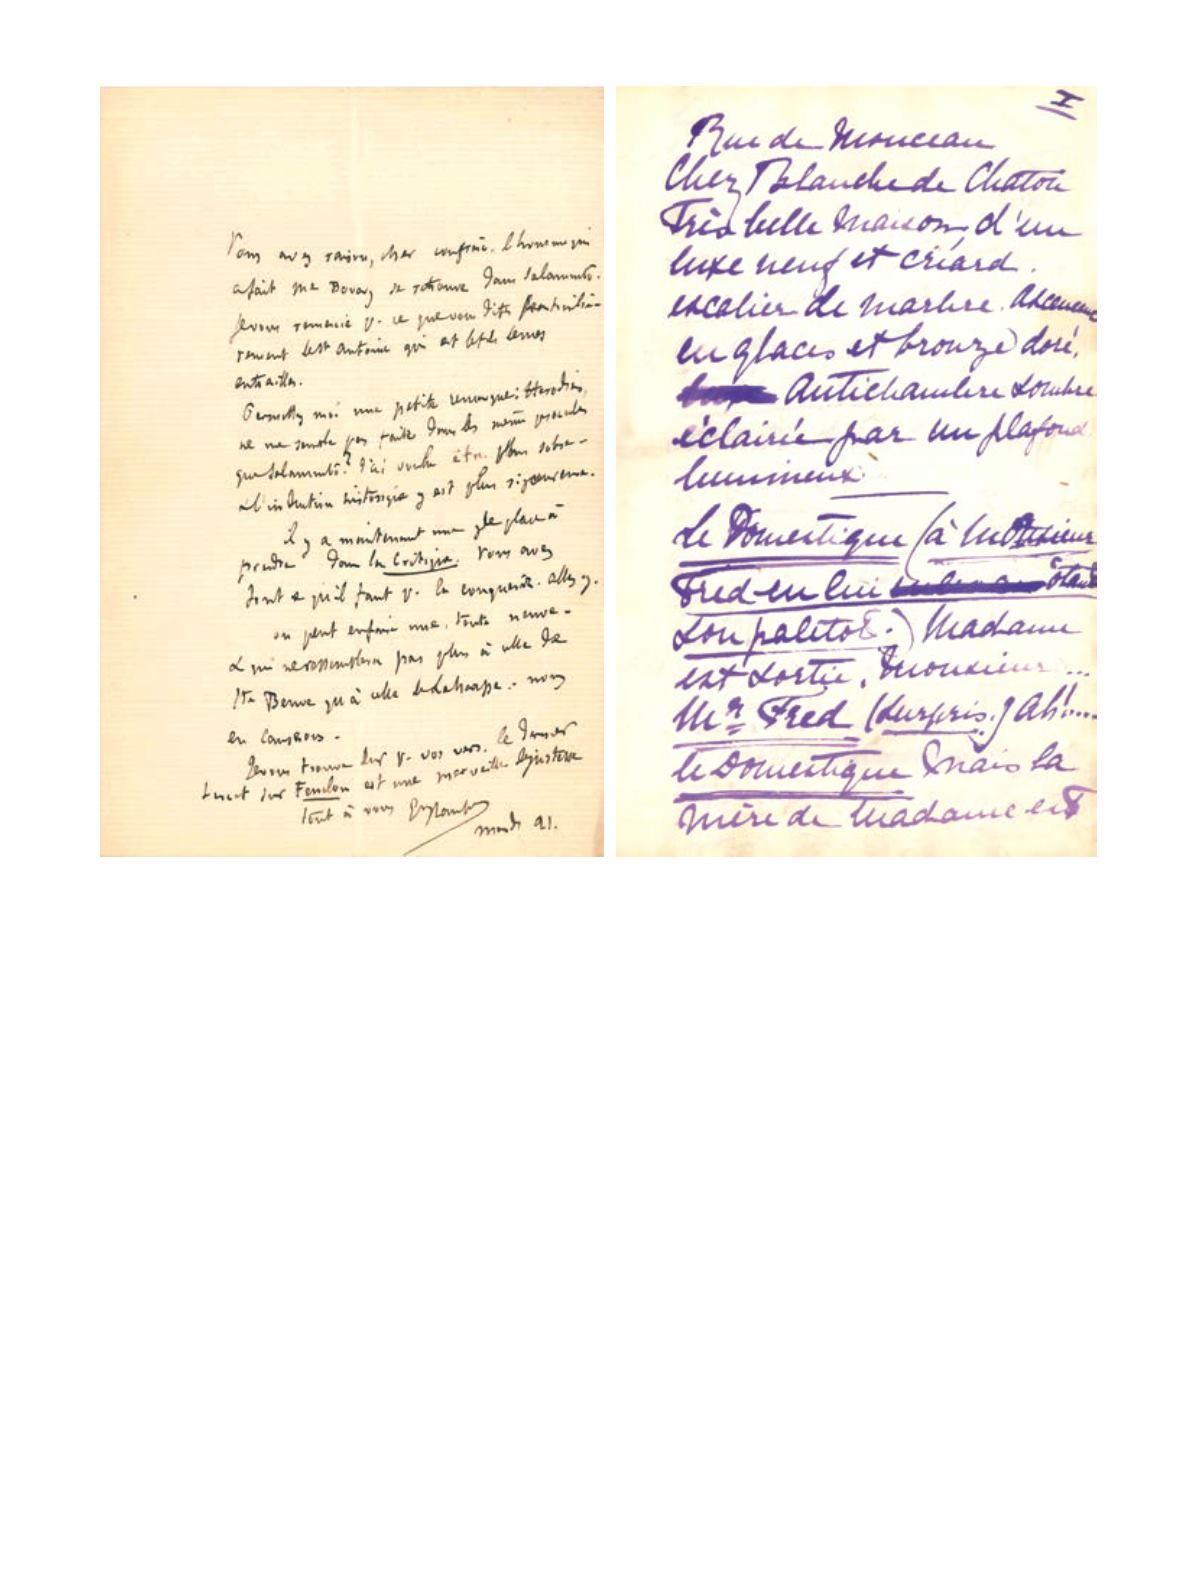 Vous avez raison, cher confrère. l'homme qui
a fait Me Bovary se retrouve dans Salammbô.
Je vous remercie p. ce que vous dites particuliè-
rement de St Antoine qui est
entrailles.
Permettez moi une petite remarque: Herodias,
ne me semble pas faite dans les même procédés
que Salammbô? J'ai voulu être plus sobre -
& l'intuition historique y est plus rigoureuse.
il y a maintenant une gde place à
prendre dans la Critique. Vous avez
tout ce qu'il faut p. la conquérir. allez y.
on peut enfaire une, toute neuve -
& qui ne ressemblera pas plus à celle de
Ste Beuve qu'à celle de Laharpe. - nous
en causerons -
Je vous trouve dur p. vos vers. le dernier
sonnet sur Fenelon est une merveille
Tout à vous
mardi 21.
I
Rue de Monceau
Chez Blanche de Chatou
Très belle maison d'un
luxe neuf et criard.
escalier de marbre. Ascenseur
en glaces et bronze doré.
Antichambre sombre
éclairée par un plafond
lumineux.
Le Domestique (à Monsieur
Fred en lui ôtant
son paletot.) Madame
est sortie, Monsieur...
Mr Fred (surpris.) Ah!....
le Domestique Mais la
mère de Madame est